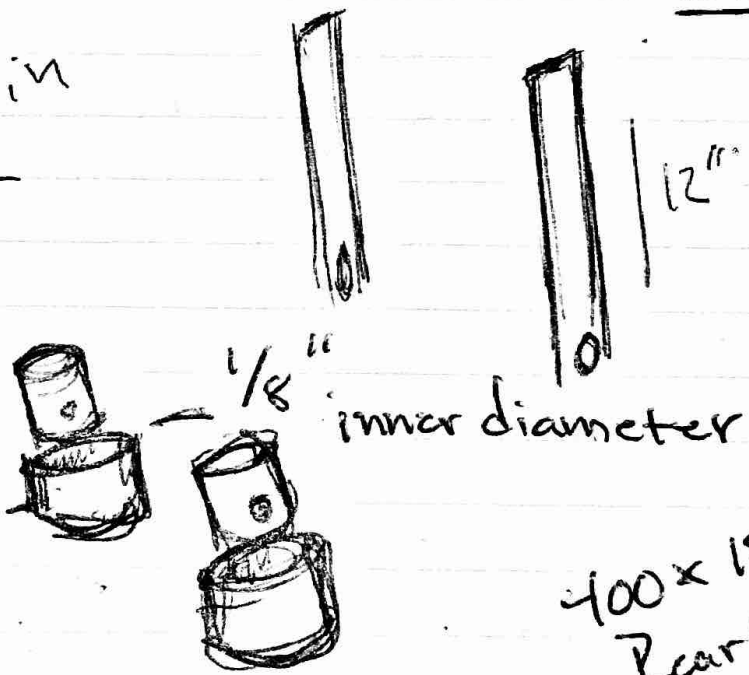 in
12"
1/8"
inner diameter
400 x